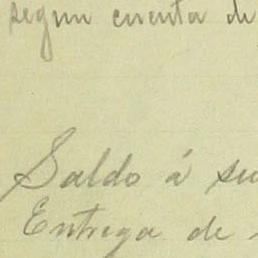 segun cuenta de
Saldo á su
Entrega de